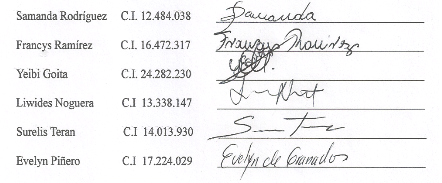 Samanda Rodríguez C.I. 12.484.038 Samanda
Francys Ramírez C.I. 16.472.317 Francys Ramirez
Yeibi Goita C.I. 24.282.230
Liwides Noguera C.I 13.338.147
Surelis Teran C.I 14.013.930
Evelyn Piñero C.I 17.224.029 Evelyn de Granados